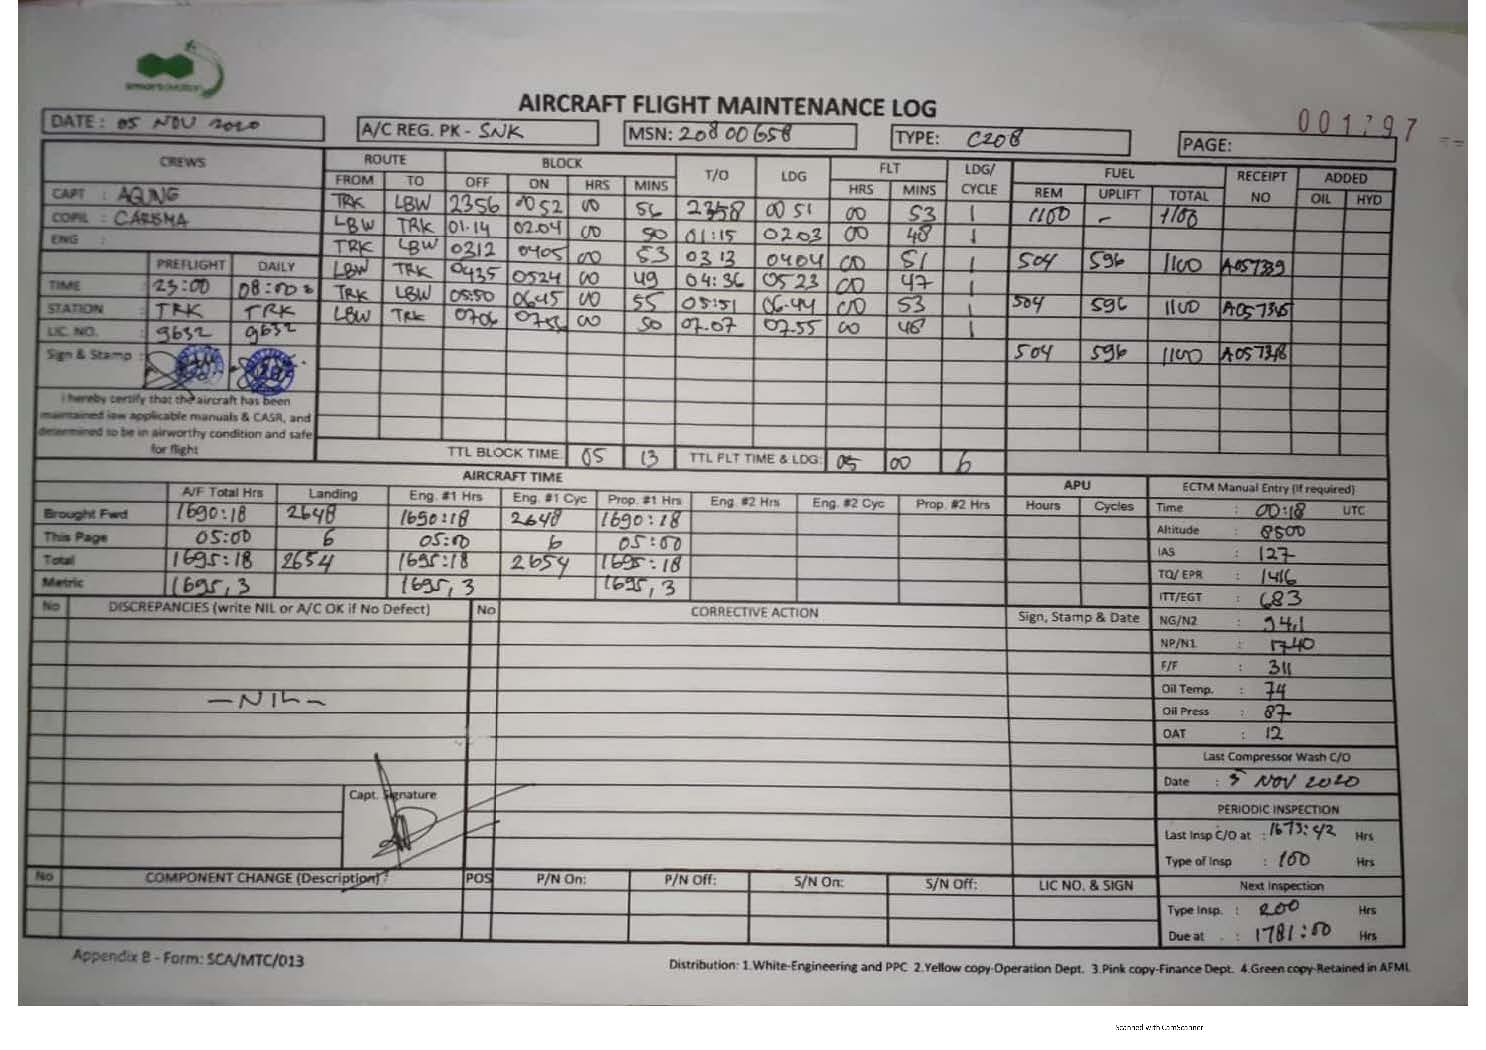 smart aviation
AIRCRAFT FLIGHT MAINTENANCE LOG
001797
DATE: 05 NOV 2020 A/C REG. PK - SNK MSN: 20800658 TYPE: C208 PAGE:
CREWS ROUTE BLOCK T/O LDG FLT LDG/ CYCLE FUEL RECEIPT NO ADDED
FROM TO OFF ON HRS MINS HRS MINS REM UPLIFT TOTAL OIL HYD
CAPT : AGUNG TRK LBW 2356 0052 00 56 2358 0051 00 53 1 1100 - 1100
COPIL : CARISMA LBW TRK 01.14 0204 00 50 01:15 0203 00 48 1
ENG : TRK LBW 0312 0405 00 53 0313 0404 00 51 1 504 596 1100 A057339
PREFLIGHT DAILY LBW TRK 0435 0524 00 49 04:36 0523 00 47 1
TIME : 23:00 08:00 TRK LBW 05:50 0645 00 55 05:51 06.44 00 53 1 504 596 1100
STATION : TRK TRK LBW TRK 0706 00 50 07.07 07.55 00 48 1
LIC NO. : 9632 9632
Sign & Stamp : 504 596 1100
I hereby certify that the aircraft has been
maintained iaw applicable manuals & CASR, and
determined to be in airworthy condition and safe
for flight
TTL BLOCK TIME: 05 13 TTL FLT TIME & LDG: 05 00 6
AIRCRAFT TIME APU ECTM Manual Entry (If required)
A/F Total Hrs Landing Eng. #1 Hrs Eng. #1 Cyc Prop. #1 Hrs Eng. #2 Hrs Eng. #2 Cyc Prop. #2 Hrs Hours Cycles
Brought Fwd 1690:18 2648 1690:18 2648 1690:18
This Page 05:00 6 05:00 6 05:00
Total 1695:18 2654 1695:18 2654 1695:18
Metric 1695,3 1695,3 1695,3
Time : 00:18 UTC
Altitude : 8500
IAS : 127
TQ/ EPR : 1416
ITT/EGT : 683
NG/N2 : 94.1
NP/N1 : 1740
F/F : 311
Oil Temp. : 74
Oil Press : 87
OAT : 12
Last Compressor Wash C/O
Date : 5 NOV 2020
PERIODIC INSPECTION
Last Insp C/O at : 1673:42 Hrs
Type of Insp : 100 Hrs
Next Inspection
Type Insp. : 200 Hrs
Due at : 1781:00 Hrs
No DISCREPANCIES (write NIL or A/C OK if No Defect) No CORRECTIVE ACTION Sign, Stamp & Date
- NIL -
Capt. Signature
No COMPONENT CHANGE (Description) POS P/N On: P/N Off: S/N On: S/N Off: LIC NO. & SIGN
Appendix B - Form: SCA/MTC/013
Distribution: 1.White-Engineering and PPC 2.Yellow copy-Operation Dept. 3.Pink copy-Finance Dept. 4.Green copy-Retained in AFML
Scanned with CamScanner